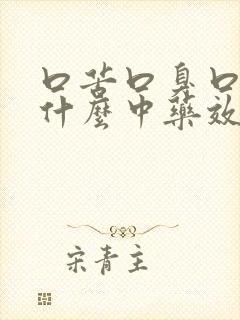 口苦口臭口
什麼中藥效
宋青主